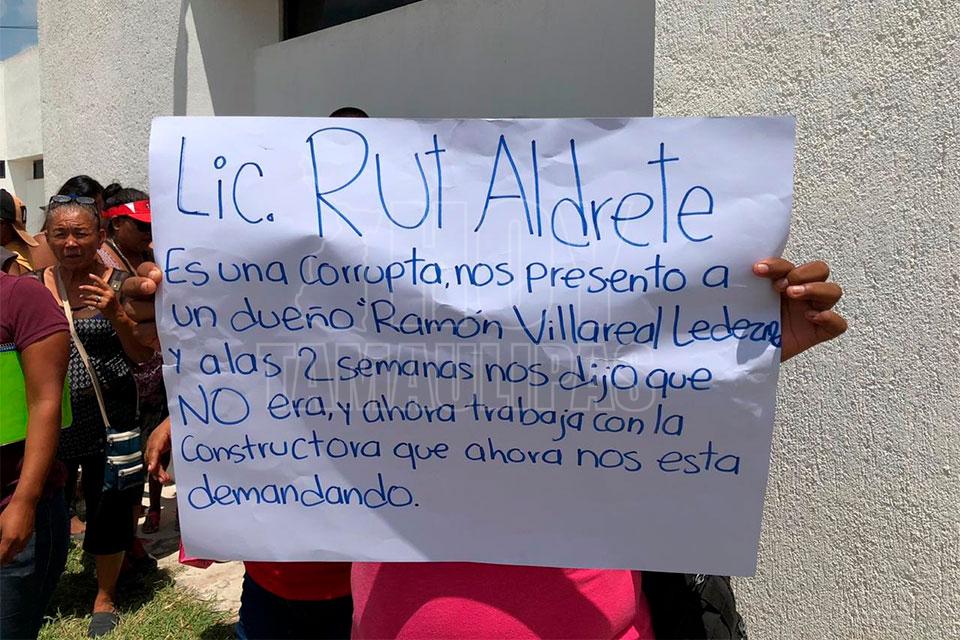 Lic. RUt Aldrete
Es una corrupta, nos presento a
un dueño "Ramón Villareal Ledezma
y alas 2 semanas nos dijo que
NO era, y ahora trabaja con la
constructora que ahora nos esta
demandando.
HOY
TAMAULIPAS